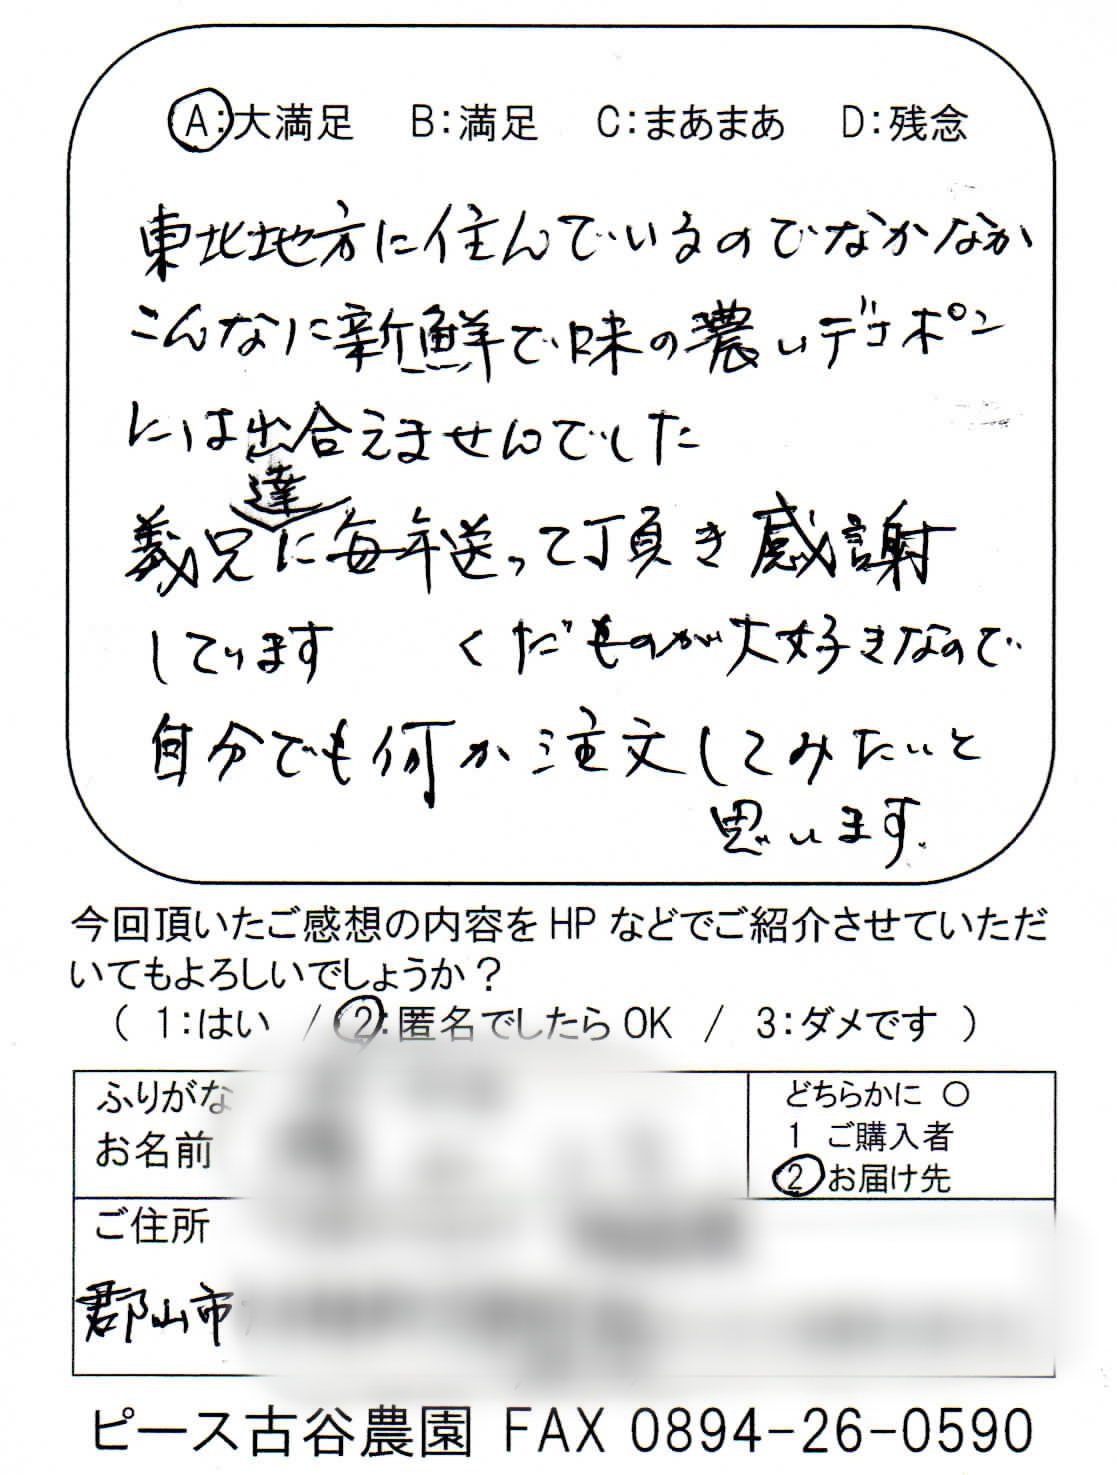 A:大満足 B:満足 C:まあまあ D:残念
東北地方に住んでいるのでなかなか
こんなに新鮮で味の濃いデコポン
には出合えませんでした
義兄達に毎年送って頂き感謝
しています くだものが大好きなので
自分でも何か注文してみたいと
思います。
今回頂いたご感想の内容をHPなどでご紹介させていただ
いてもよろしいでしょうか？
（ 1:はい / 2:匿名でしたらOK / 3:ダメです ）
ふりがな
お名前
どちらかに ○
1 ご購入者
2 お届け先
ご住所
郡山市
ピース古谷農園 FAX 0894-26-0590